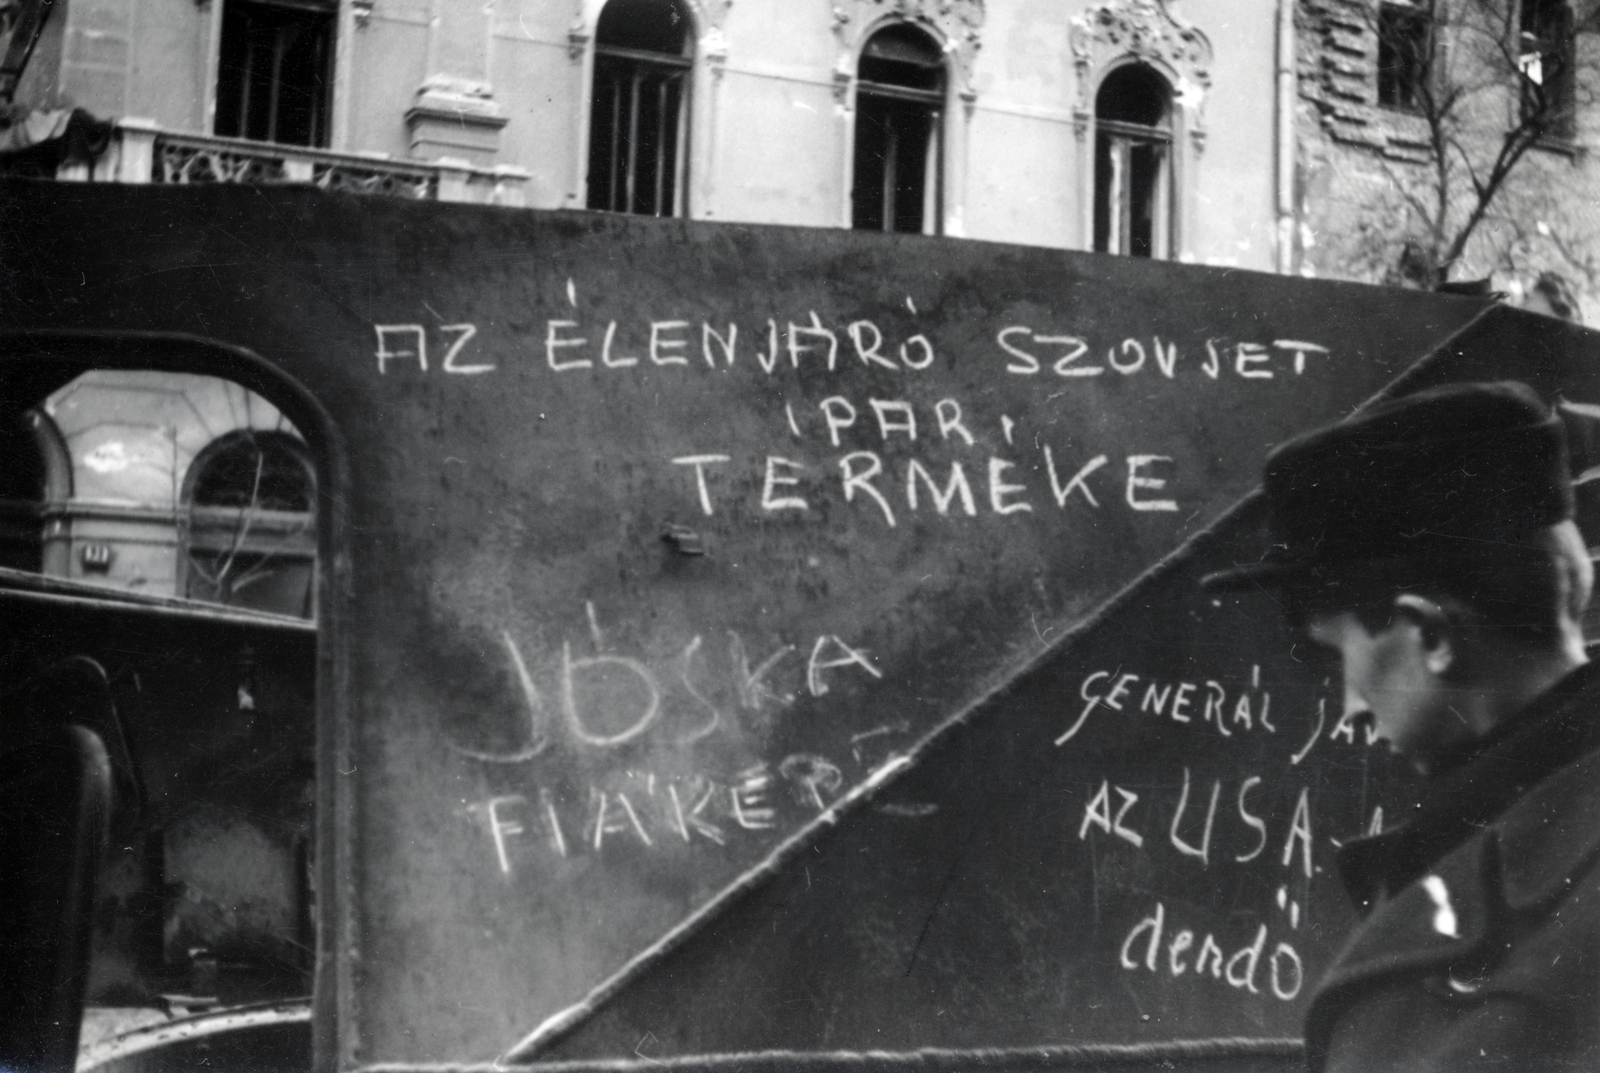 AZ ÉLENJÁRÓ SZOVJET
IPARI
TERMÉKE
JÓSKA
FIÁKER
GENERÁL JAV
AZ USA-
dendő